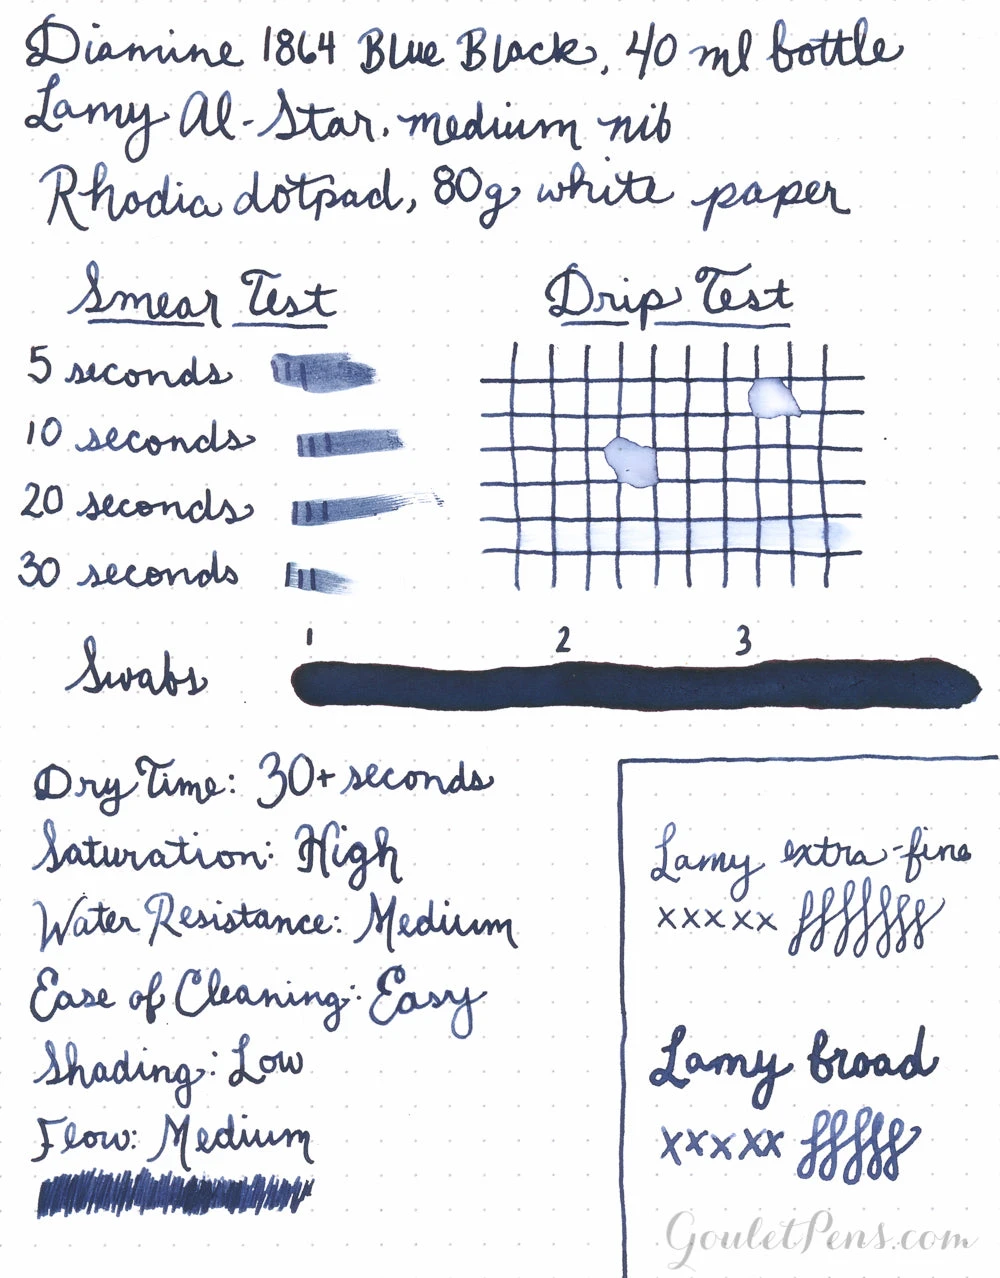 Diamine 1864 Blue Black, 40 ml bottle
Lamy Al-Star, medium nib
Rhodia dotpad, 80g white paper
Smear Test
5 seconds
10 seconds
20 seconds
30 seconds
Drip Test
1 2 3
Swabs
Dry Time: 30+ seconds
Saturation: High
Water Resistance: Medium
Ease of Cleaning: Easy
Shading: Low
Flow: Medium
Lamy extra-fine
xxxxx
Lamy broad
xxxxx
GouletPens.com